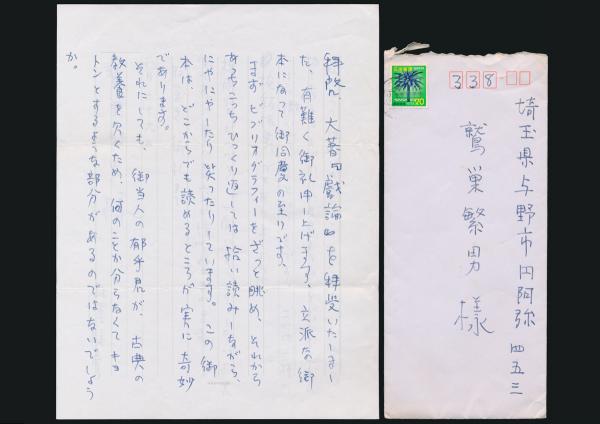 拝啓、大著『戯論』を拝受いたしまし
た、有難く御礼申し上げます、立派な御
本になって御同慶の至りです、
まずビブリオグラフィーをざっと眺め、それから
あちこちひっくり返しては拾い読みしながら、
にやにやしたり笑ったりしています。この御
本は、どこからでも読めるところが実に奇妙
であります。
それにしても、御当人の郁乎君が、古典の
教養を欠くため、何のことか分らなくてキョ
トンとするような部分があるのではないでしょう
か。
338
埼玉県与野市円阿弥 四五三
鷲巣繁男様
20